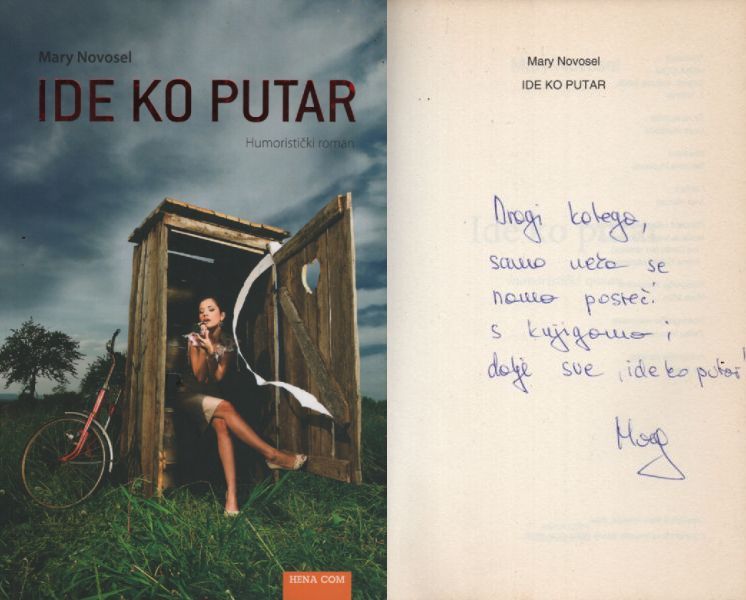 Mary Novosel
IDE KO PUTAR
Humoristički roman
HENA COM
Mary Novosel
IDE KO PUTAR
Dragi kolega,
samo neka se
nama posreći
s knjigama i
dalje sve „ide ko putar!
Mary